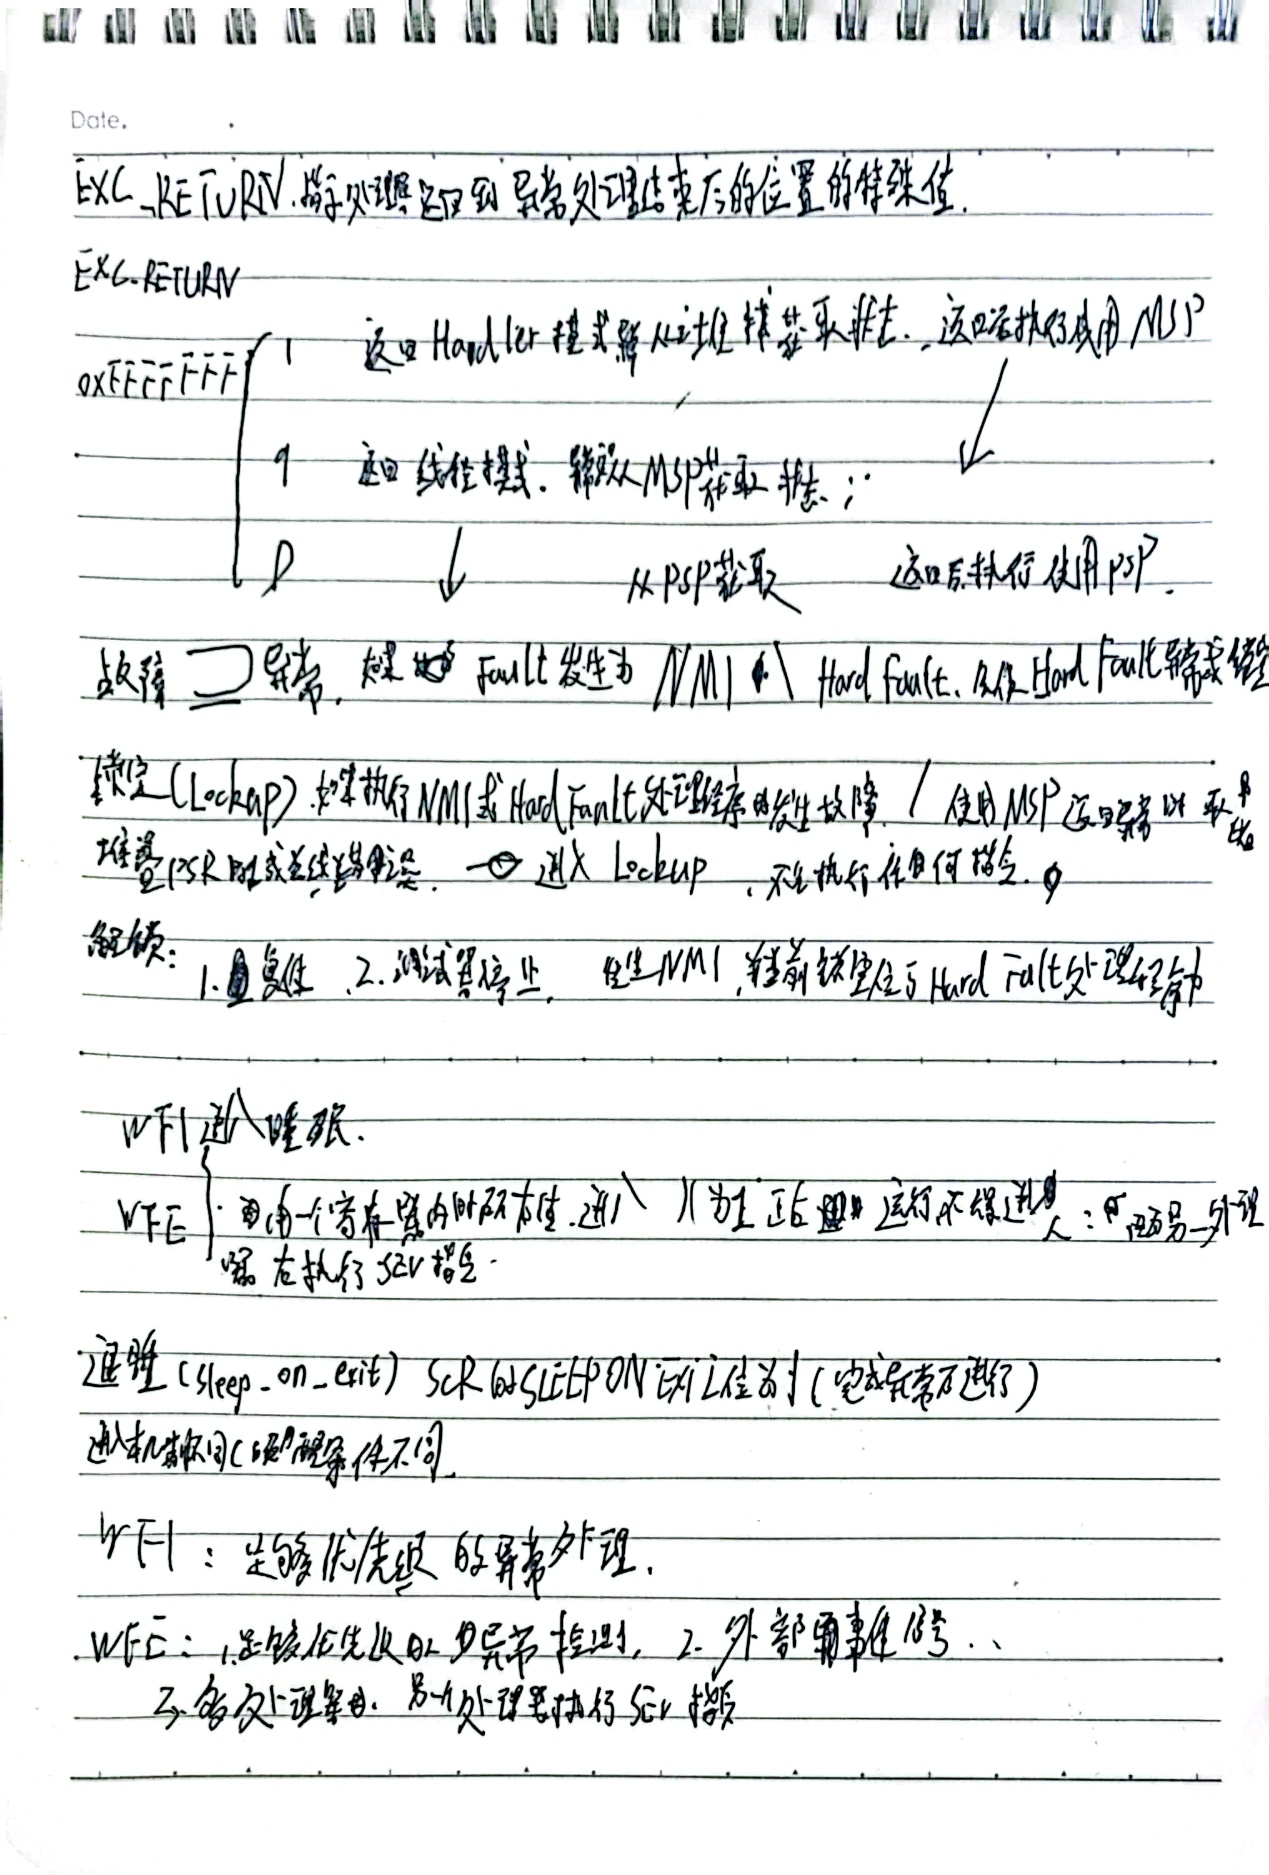 Date.
EXC_RETURN.指示处理器返回到异常处理结束后的位置的特殊值.
EXC-RETURN
1 返回Handler模式 从主堆栈获取状态.,返回后执行使用MSP
0xFFFFFFF
9 返回线程模式. 从MSP获取状态;
D 从PSP获取 返回后执行使用PSP.
故障 异常. 如果 Fault发生为 NMI Hard Fault. Hard Fault异常或锁定
锁定(Lockup).如果执行NMI或HardFault处理程序时发生故障 / 使用MSP返回异常时
堆叠PSR时 → 进入 Lockup ,不执行任何指令.
解锁:
1.复位 .2.调试器停止. 发生NMI, 当前锁定位于Hard Fault处理程序中
WFI 进入睡眠.
WFE 由一个寄存器内的值.进入 //为1 运行不 : 另一处理
器在执行SEV指令.
退睡(sleep_on_exit) SCR的SLEEPONEXIT位为1(完成异常后进行)
进入机制相同(唤醒条件不同.
WFI : 足够优先级 的异常处理.
WFE : 1.足够优先级的 异常 . 2. 外部事件信号..
3.多处理器中. 另一个处理器执行SEV指令